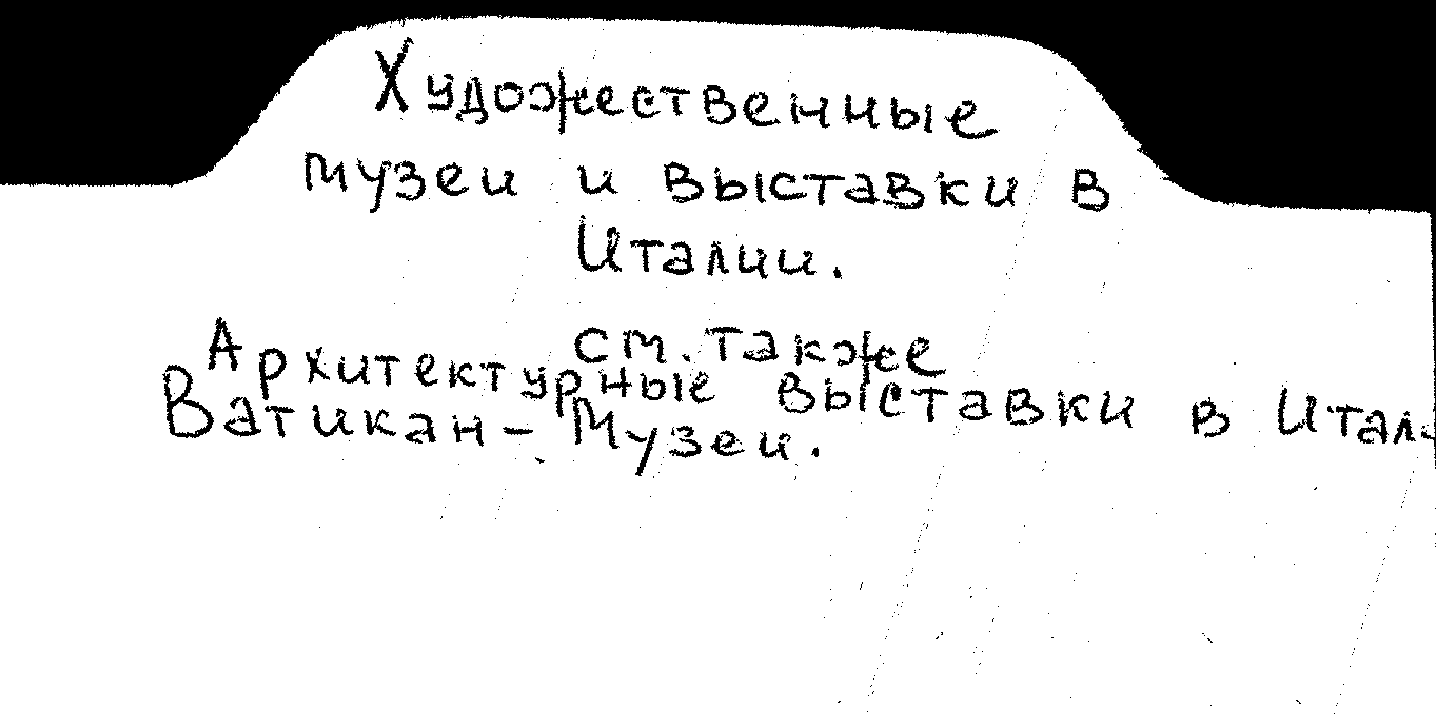 Художественные
музеи и выставки в
Италии.
см. также
Архитектурные выставки в Итал-
Ватикан - Музеи.